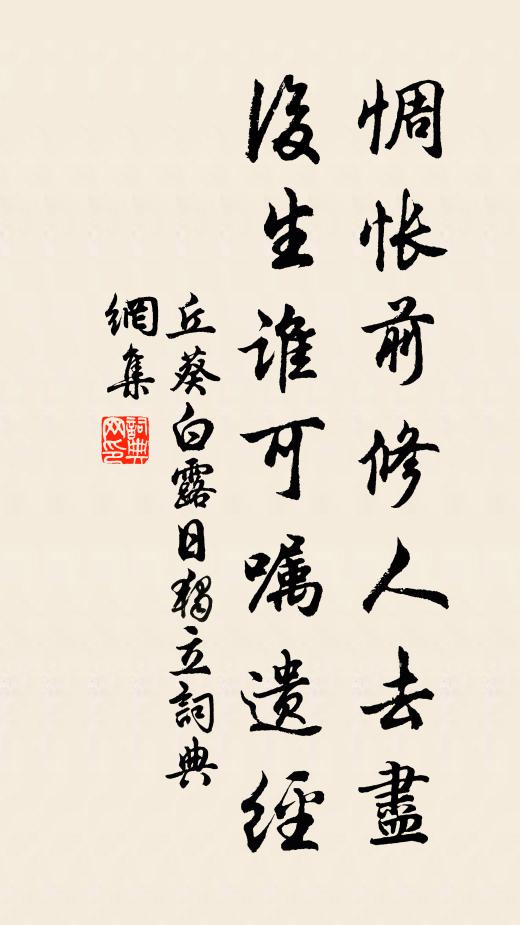 惆怅前修人去盡
後生谁可嘱遗經
丘葵白露日獨立詞典
網集
詞典
网印